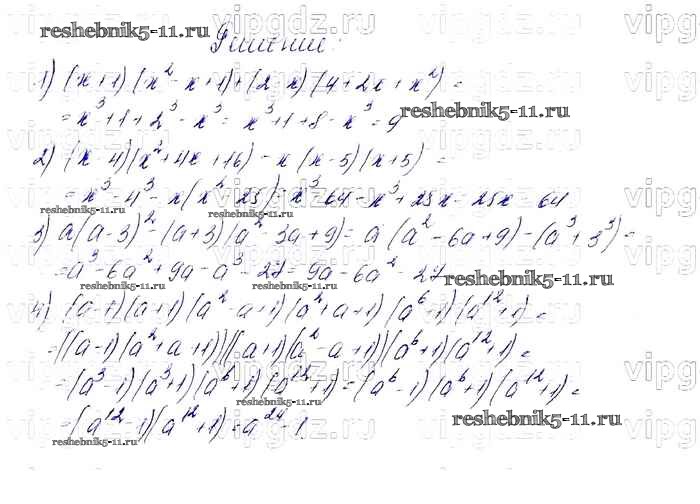 reshebnik5-11.ru
Решение:
1) (x+1)(x²-x+1)+(2-x)(4+2x+x²)=
=x³+1+2³-x³=x³+1+8-x³=9
reshebnik5-11.ru
2) (x-4)(x²+4x+16)-x(x-5)(x+5)=
=x³-4³-x(x²-25)=x³-64-x³+25x=25x-64
reshebnik5-11.ru reshebnik5-11.ru
3) a(a-3)²-(a+3)(a²-3a+9)=a(a²-6a+9)-(a³+3³)=
=a³-6a²+9a-a³-27=9a-6a²-27
reshebnik5-11.ru reshebnik5-11.ru reshebnik5-11.ru
4) (a-1)(a+1)(a²-a+1)(a²+a+1)(a⁶+1)(a¹²+1)=
=((a-1)(a²+a+1))((a+1)(a²-a+1))(a⁶+1)(a¹²+1)=
=(a³-1)(a³+1)(a⁶+1)(a¹²+1)=(a⁶-1)(a⁶+1)(a¹²+1)=
reshebnik5-11.ru reshebnik5-11.ru
=(a¹²-1)(a¹²+1)=a²⁴-1.
reshebnik5-11.ru reshebnik5-11.ru
vipgdz.ru